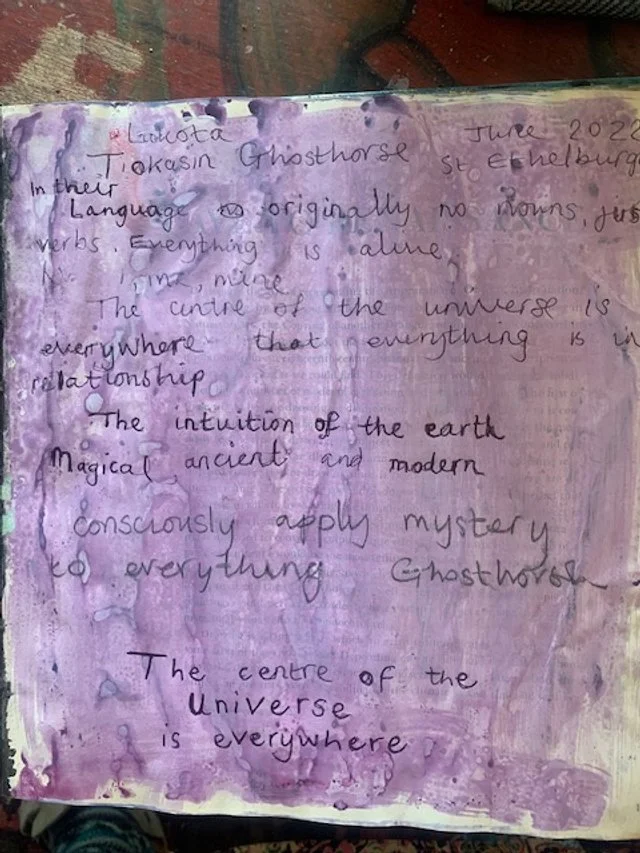 Lakota June 2022
Tiokasin Ghosthorse St Ethelburg
In their
Language originally no nouns, jus
verbs. Everything is alive
I, me, mine
The centre of the universe is
everywhere that everything is in
relationship
The intuition of the earth
Magical ancient and modern
consciously apply mystery
to everything Ghosthorse
The centre of the
Universe
is everywhere